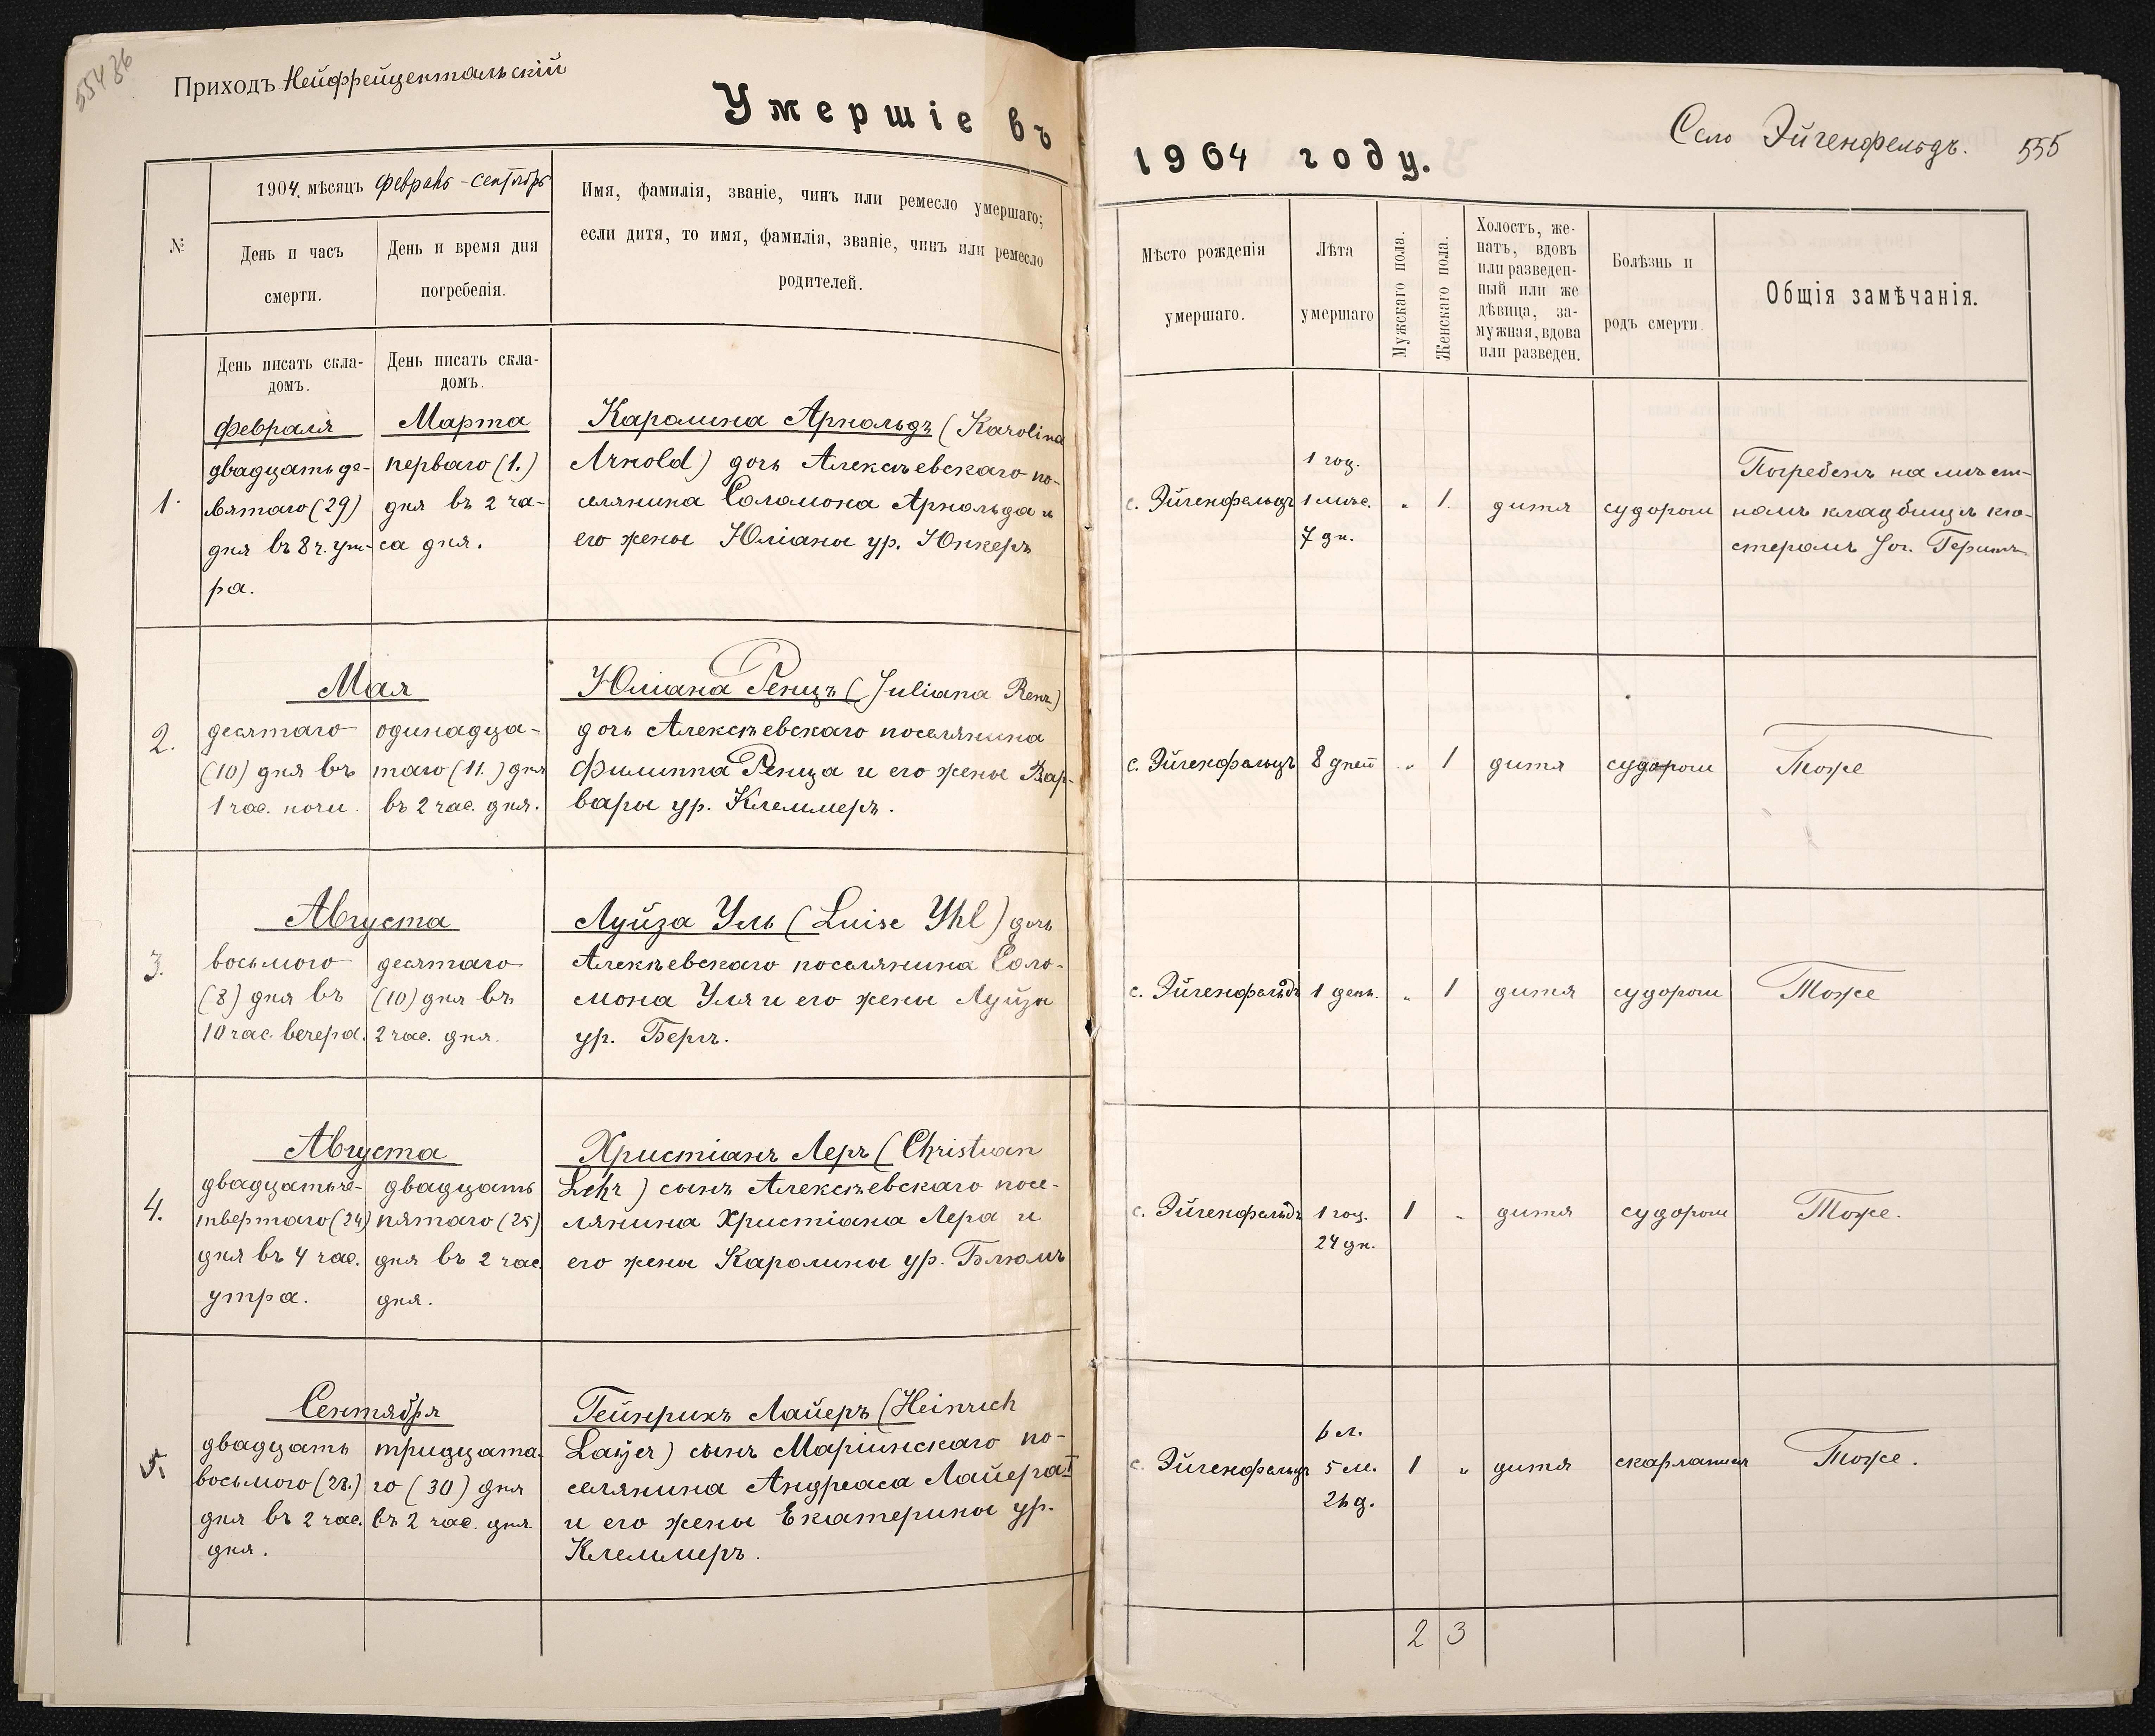 554 36
Приходъ Нейфрейдентальскій
Умершіе въ
№
1904. мѣсяцъ февраль - сентябрь
День и часъ
смерти.
День и время дня
погребенія.
Имя, фамилія, званіе, чинъ или ремесло умершаго;
если дитя, то имя, фамилія, званіе, чинъ или ремесло
родителей.
День писать скла-
домъ.
День писать скла-
домъ.
1.
Февраля
двадцать де-
вятаго (29)
дня въ 8 ч. ут-
ра.
Марта
перваго (1.)
дня въ 2 ча-
са дня.
Каролина Арнольдъ (Karolina
Arnold) дочь Алексѣевскаго по-
селянина Соломона Арнольда и
его жены Юліаны ур. Юнкеръ
2.
Мая
десятаго
(10) дня въ
1 час. ночи.
одинадца-
таго (11.) дня
въ 2 час. дня.
Юліана Ренцъ (Juliana Renz)
дочь Алексѣевскаго поселянина
Филиппа Ренца и его жены Вар-
вары ур. Клеммеръ.
3.
Августа
восьмого
(8) дня въ
10 час. вечера.
десятаго
(10) дня въ
2 час. дня.
Луйза Уль (Luise Yhl) дочь
Алексѣевскаго поселянина Соло-
мона Уля и его жены Луйзы
ур. Бергъ.
4.
Августа
двадцать че-
твертаго (24)
дня въ 4 час.
утра.
двадцать
пятаго (25)
дня въ 2 час.
дня.
Христіанъ Леръ (Christian
Lehr) сынъ Алексѣевскаго посе-
лянина Христіана Лера и
его жены Каролины ур. Блюмъ
5.
Сентября
двадцать
восьмого (28.)
дня въ 2 час.
дня.
тридцата-
го (30) дня
въ 2 час. дня.
Гейнрихъ Лайеръ (Heinrich
Layer) сынъ Маріинскаго по-
селянина Андреаса Лайера I
и его жены Екатерины ур.
Клеммеръ.
1904 году.
Село Эйгенфельдъ.
555
Мѣсто рожденія
умершаго.
Лѣта
умершаго
Мужскаго пола.
Женскаго пола.
Холостъ, же-
натъ, вдовъ
или разведен-
ный или же
дѣвица, за-
мужная, вдова
или разведен.
Болѣзнь и
родъ смерти.
Общія замѣчанія.
с. Эйгенфельдъ
1 год.
1 мѣс.
7 дн.
„
1.
дитя
судороги
Погребенъ на мѣст-
номъ кладбищѣ кю-
стеромъ Jог.
с. Эйгенфельдъ
8 дней
„
1
дитя
судороги
Тоже
с. Эйгенфельдъ
1 день.
„
1
дитя
судороги
Тоже
с. Эйгенфельдъ
1 год.
24 дн.
1
„
дитя
судороги
Тоже.
с. Эйгенфельдъ
6 л.
5 м.
26 д.
1
„
дитя
скарлатина
Тоже.
2
3